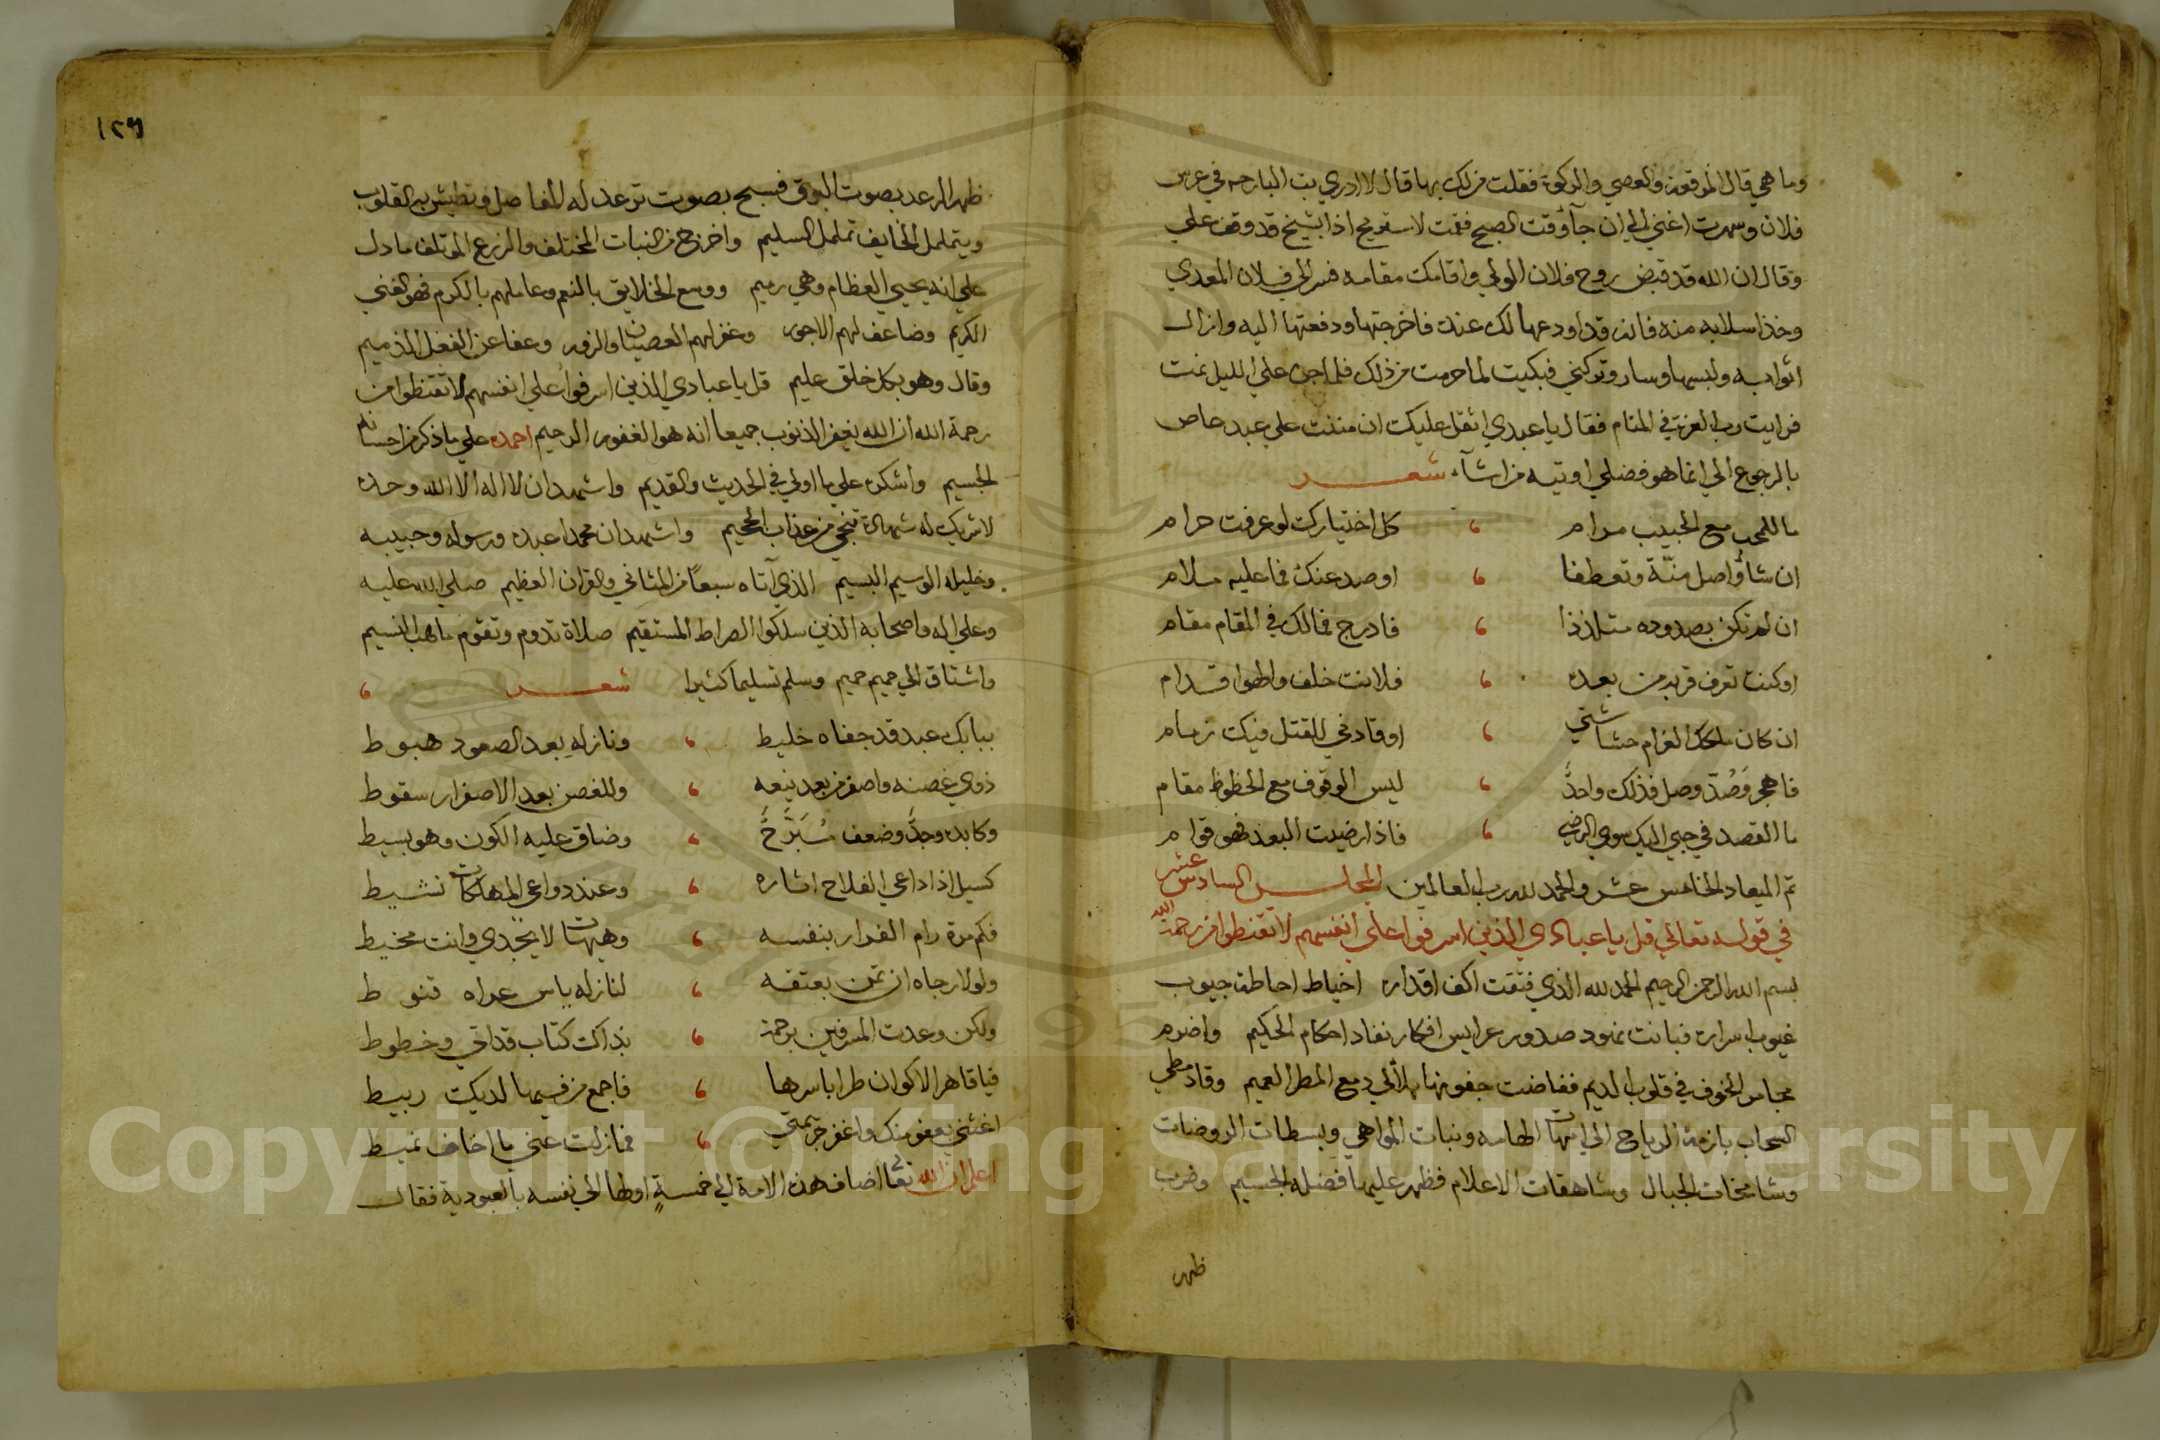 وما هي قال المرقعة والعصي والركوة فقلت من لك بها قال لا ادري بت البارحه في عرس
فلان وسهرت اغني الي ان جآ وقت الصبح فقمت لاستريح اذا بشيخ قد وقف علي
وقال ان الله قد قبض روح فلان الولي واقامك مقامه فسر الي فلان المعدي
وخذ اسلابه منه فانه قد اودعها لك عنده فاخرجتها ودفعتها اليه وازال
اثوابه ولبسها وسار وتركني فبكيت لما حرمت من ذلك فلما جن علي الليل نمت
فرايت رب العزة في المنام فقال يا عبدي اثقل عليك ان مننت علي عبد عاص
بالرجوع الي انما هو فضلي اوتيه من اشآء شعر
ما للمحب مع الحبيب مرام ، كل اختيارك لو عرفت حرام
ان شآ واصل منّة وتعطفا ، او صد عنك فما عليه ملام
ان لم تكن بصدوده متلذذا ، فادرج فمالك في المقام مقام
او كنت تعرف قربه من بعده ، فلانت خلف والهوا قدام
ان كان ملكك الغرام حشاشتي ، او قادني للقتل فيك زمام
فاهجر وَصُدّ وصل فذلك واحدٌ ، ليس الوقوف مع الحظوظ مقام
ما القصد في حبي اليك سوي الرضي ، فاذا رضيت البعد فهو قوام
تم الميعاد الخامس عشر والحمد لله رب العالمين المجلس السادس عشر
في قوله تعالي قل يا عبادي الذين اسرفوا علي انفسهم لا تقنطوا من رحمة الله
بسم الله الرحمن الرحيم الحمد لله الذي فتقت اكف اقداره اخياط احاطة جيوب
غيوب اسراره فبانت نهود صدور عرايس افكار نفاد احكام الحكيم واضرم
مجامر الخوف في قلوب الديم ففاضت جفونها بلألي دمع المطر العميم وقاد مطي
السحاب بازمة الرياح الي امهات الهامه ونبات المواهي وبسطات الروضات
وشامخات الجبال وشاهقات الاعلام فظهر عليها فضله الجسيم وضرب
ظهر
١٢٦
ظهر الرعد بصوت البوق فسبح بصوت ترعد له المفاصل وتطيش به القلوب
ويتململ الخايف تململ السليم واخرج من النبات المختلف والزرع المؤتلف ما دل
علي انه يحيي العظام وهي رميم ووسع الخلايق بالنعم وعاملهم بالكرم فهو الغني
الكريم وضاعف لهم الاجور وغفر لهم العصيان والزور وعفا عن الفعل الذميم
وقال وهو بكل خلق عليم قل يا عبادي الذين اسرفوا علي انفسهم لا تقنطوا من
رحمة الله ان الله يغفر الذنوب جميعا انه هو الغفور الرحيم احمده علي ما ذكر من احسانه
الجسيم واشكره علي ما اولي في الحديث والقديم واشهد ان لا اله الا الله وحده
لا شريك له شهادة تنجي من عذاب الجحيم واشهد ان محمدا عبده ورسوله وحبيبه
وخليله الوسيم البسيم الذي آتاه سبعاً من المثاني والقران العظيم صلي الله عليه
وعلي اله واصحابه الذين سلكوا الصراط المستقيم صلاة تدوم وتقوم ما هب النسيم
واشتاق الي حميم حميم وسلم تسليما كثيرا شعر ،
ببابك عبد قد جفاه خليط ، ونازله بعد الصعود هبوط
ذوي غصنه واصفر من بعد ينعه ، وللغصن بعد الاصفرار سقوط
وكابده وجدٌ وضعف مُبَرِّحٌ ، وضاق عليه الكون وهو بسيط
كسيل اذا داعي الفلاح اشاره ، وعند دواعي المهلكات نشيط
فكم مرة رام الفرار بنفسه ، وهيهات لا يجدي وانت محيط
ولولا رجاه ان تمن بعتقه ، لنازله ياس عراه قنوط
ولكن وعدت المسرفين برحمة ، بذاك كتاب قد اتي وخطوط
فيا قاهر الاكوان طرا باسرها ، فاجمع من فيها لديك ربيط
اغثني بعفو منك واغفر جريمتي ، فما زلت عني ما اخاف تميط
اعلم ان الله تعالي اضاف هذه الامة الي خمسةٍ اولها الي نفسه بالعبودية فقال